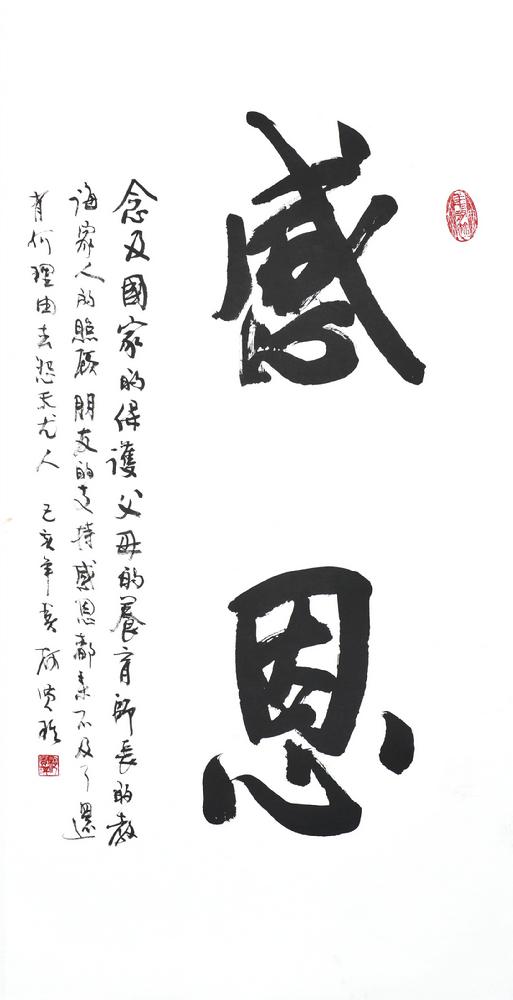 感恩
念及國家的保護父母的養育師長的教
誨家人的照顧朋友的支持感恩都来不及了還
有何理由去怨天尤人 己亥年